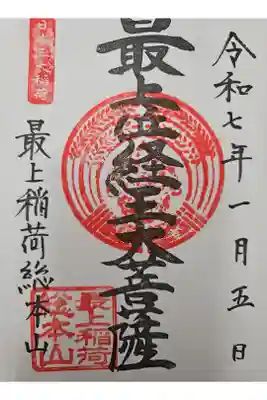 令和七年一月五日
最上位経王大菩薩
最上稲荷総本山
最上稲荷
総本山